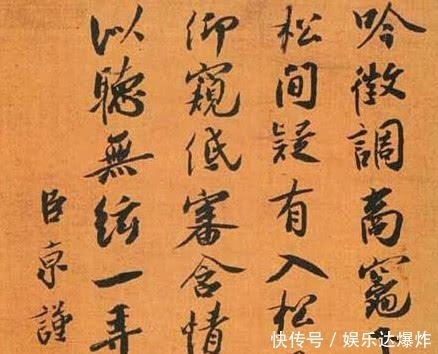 吟徵調商竈
松間疑有入松
仰窺低審含情
似聽無絃一弄
臣京謹
快传号 / 娱乐达爆炸